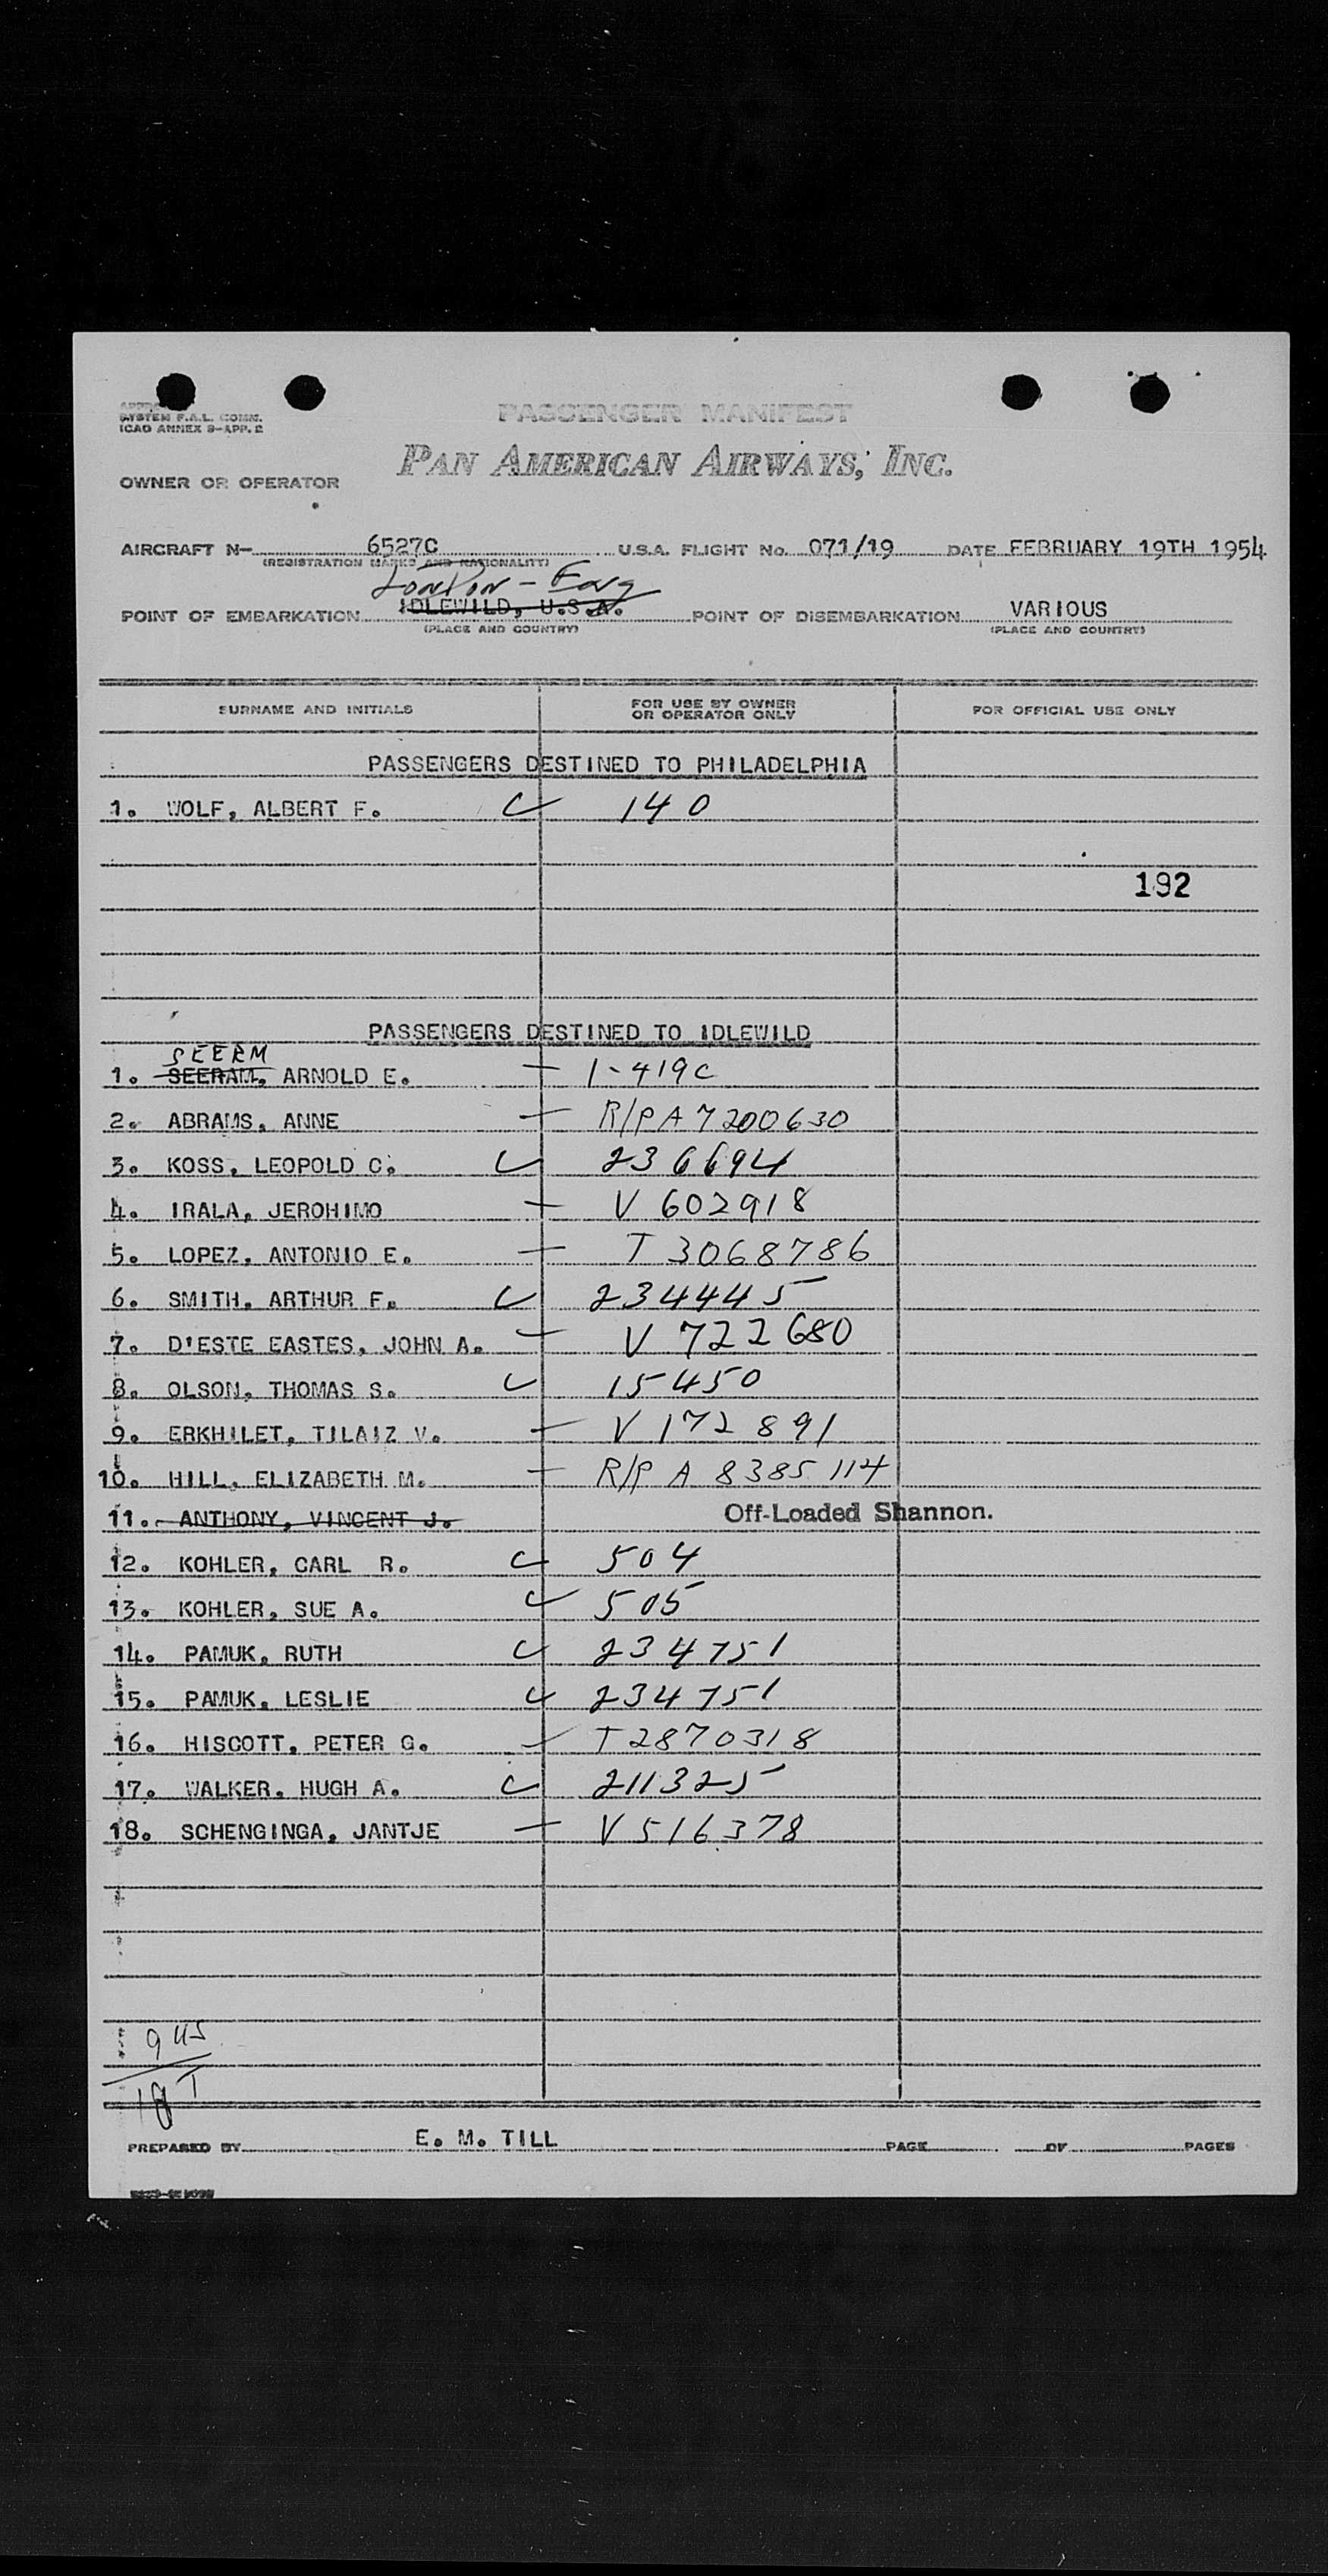 SYSTEM F.A.L. COMM.
ICAO ANNEX 9-APP. 2
PASSENGER MANIFEST
PAN AMERICAN AIRWAYS, INC.
OWNER OR OPERATOR
AIRCRAFT N- 6527C U.S.A. FLIGHT No. 071/19 DATE FEBRUARY 19TH 1954
(REGISTRATION MARKS AND NATIONALITY)
London - Eng
POINT OF EMBARKATION IDLEWILD, U.S.A. POINT OF DISEMBARKATION VARIOUS
(PLACE AND COUNTRY) (PLACE AND COUNTRY)
SURNAME AND INITIALS FOR USE BY OWNER OR OPERATOR ONLY FOR OFFICIAL USE ONLY
PASSENGERS DESTINED TO PHILADELPHIA
1. WOLF, ALBERT F. C 140
192
PASSENGERS DESTINED TO IDLEWILD
SEERM
1. SEERAM, ARNOLD E. — 1-419C
2. ABRAMS, ANNE — R/P A7200630
3. KOSS, LEOPOLD C. C 236694
4. IRALA, JEROHIMO — V 602918
5. LOPEZ, ANTONIO E. — T 3068786
6. SMITH, ARTHUR F. C 234445
7. D'ESTE EASTES, JOHN A. — V 722680
8. OLSON, THOMAS S. C 15450
9. ERKHILET, TILAIZ V. — V 172891
10. HILL, ELIZABETH M. — R/P A 8385114
11. ANTHONY, VINCENT J. Off-Loaded Shannon.
12. KOHLER, CARL R. C 504
13. KOHLER, SUE A. C 505
14. PAMUK, RUTH C 234751
15. PAMUK, LESLIE C 234751
16. HISCOTT, PETER G. — T2870318
17. WALKER, HUGH A. C 211325
18. SCHENGINGA, JANTJE — V516378
9 US
PREPARED BY E. M. TILL PAGE OF PAGES